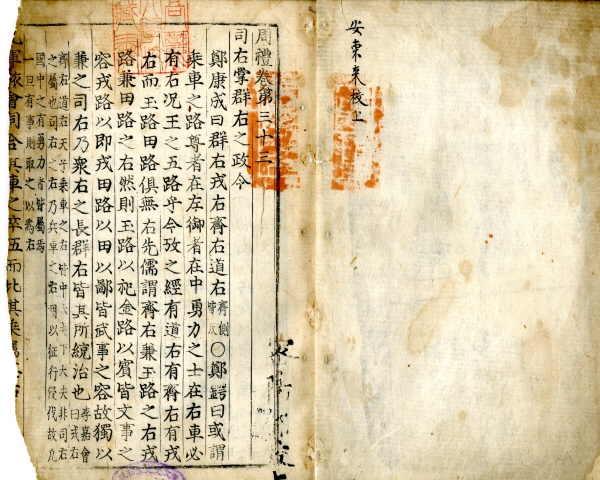 安東来校上
周禮卷第三十三
司右掌群右之政令
鄭康成曰群右戎右齊右道右齊側皆反○鄭鍔曰或謂
乘車之路尊者在左御者在中勇力之士在右車必
有右况王之五路乎今攷之經有道右有齊右有戎
右而玉路田路俱無右先儒謂齊右兼玉路之右戎
路兼田路之右然則玉路以祀金路以賓皆文事之
容戎路以即戎田路以田以鄙皆武事之容故獨以
兼之司右乃衆右之長群右皆其所統治也李嘉會曰戎右
齊右道右在天子乘車之右皆中大夫下大夫非司右
之屬也司右之右乃兵車之右用以征行役伐故凡
國中之有勇力者皆屬焉
一旦有事則取之以爲右
軍旅會同合其車之卒伍而比其乘屬其右